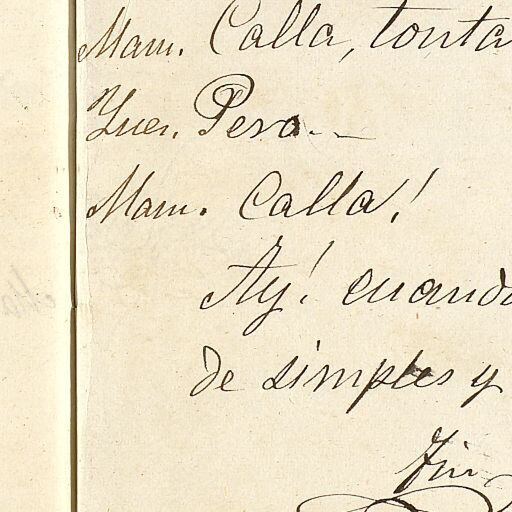 Mam. Calla, tonta
Yues. Pero..
Mam. Calla!
Ay! cuando
de simples y
Fin